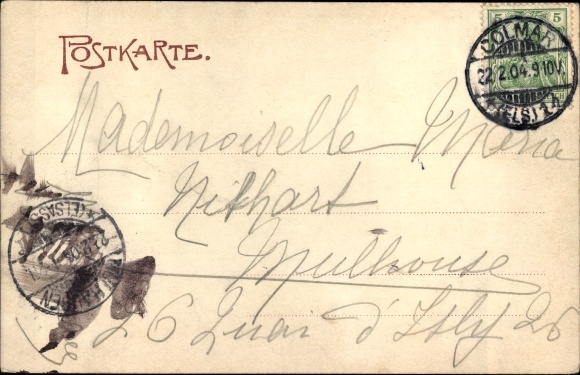 POSTKARTE.
5 5
COLMAR
22.2.04.9-10V.
(ELS.) 1A
Mademoiselle Maria
Nithart
Mulhouse
26 Quai d'Isly 26
(ELSASS)
22.2.04